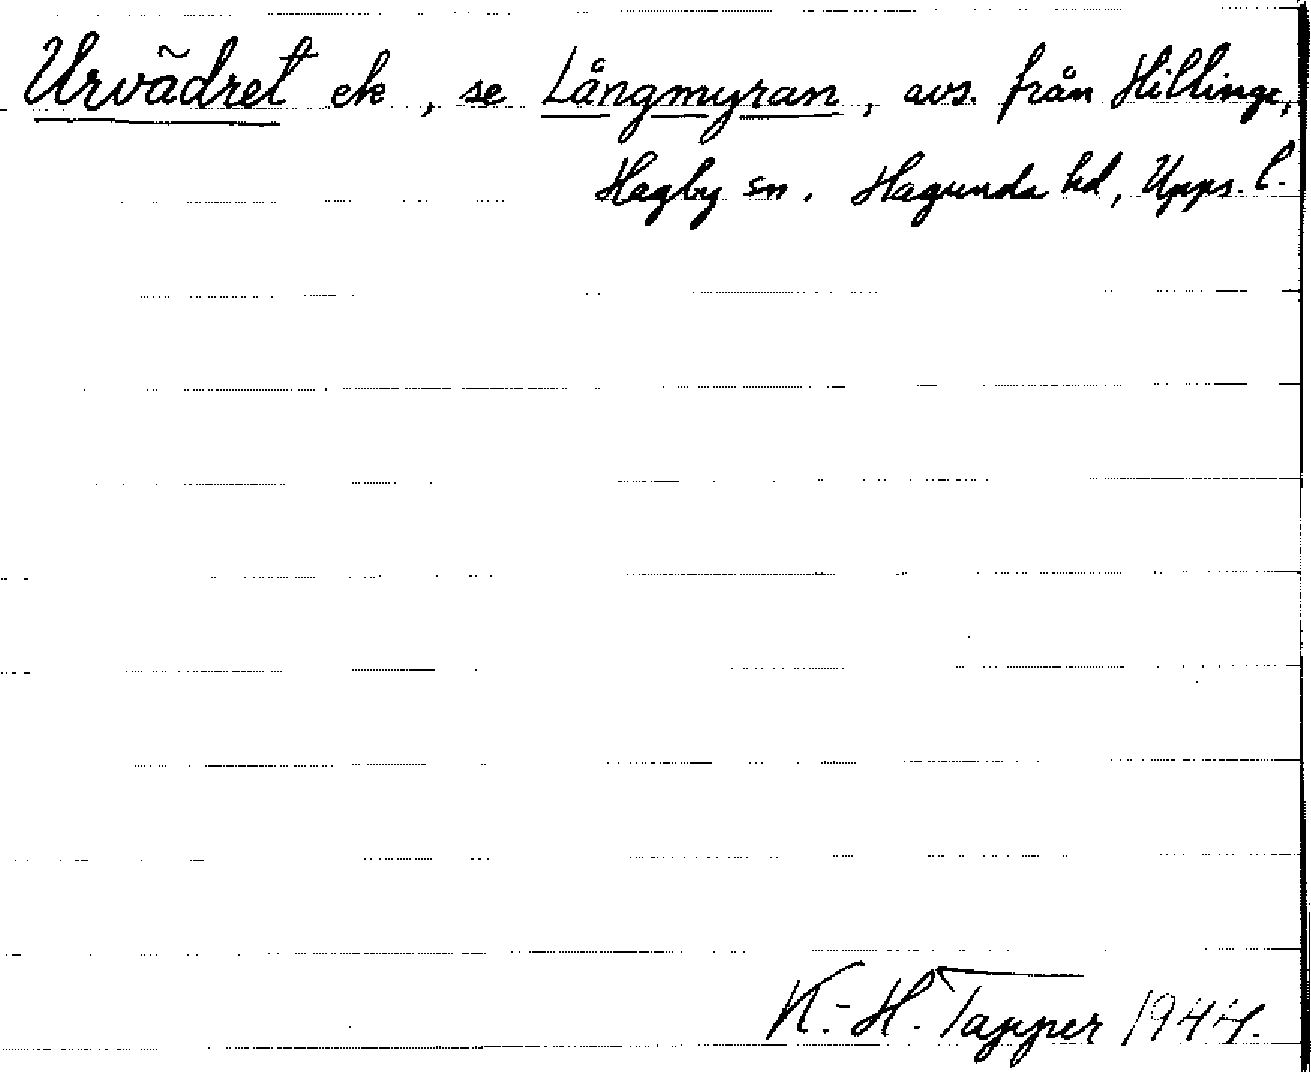 Urvädret ek, se Långmyran, avs. från Hillinge,
Hagby sn. Hagunda hd, Upps. l.
K.-H. Tapper 1944.